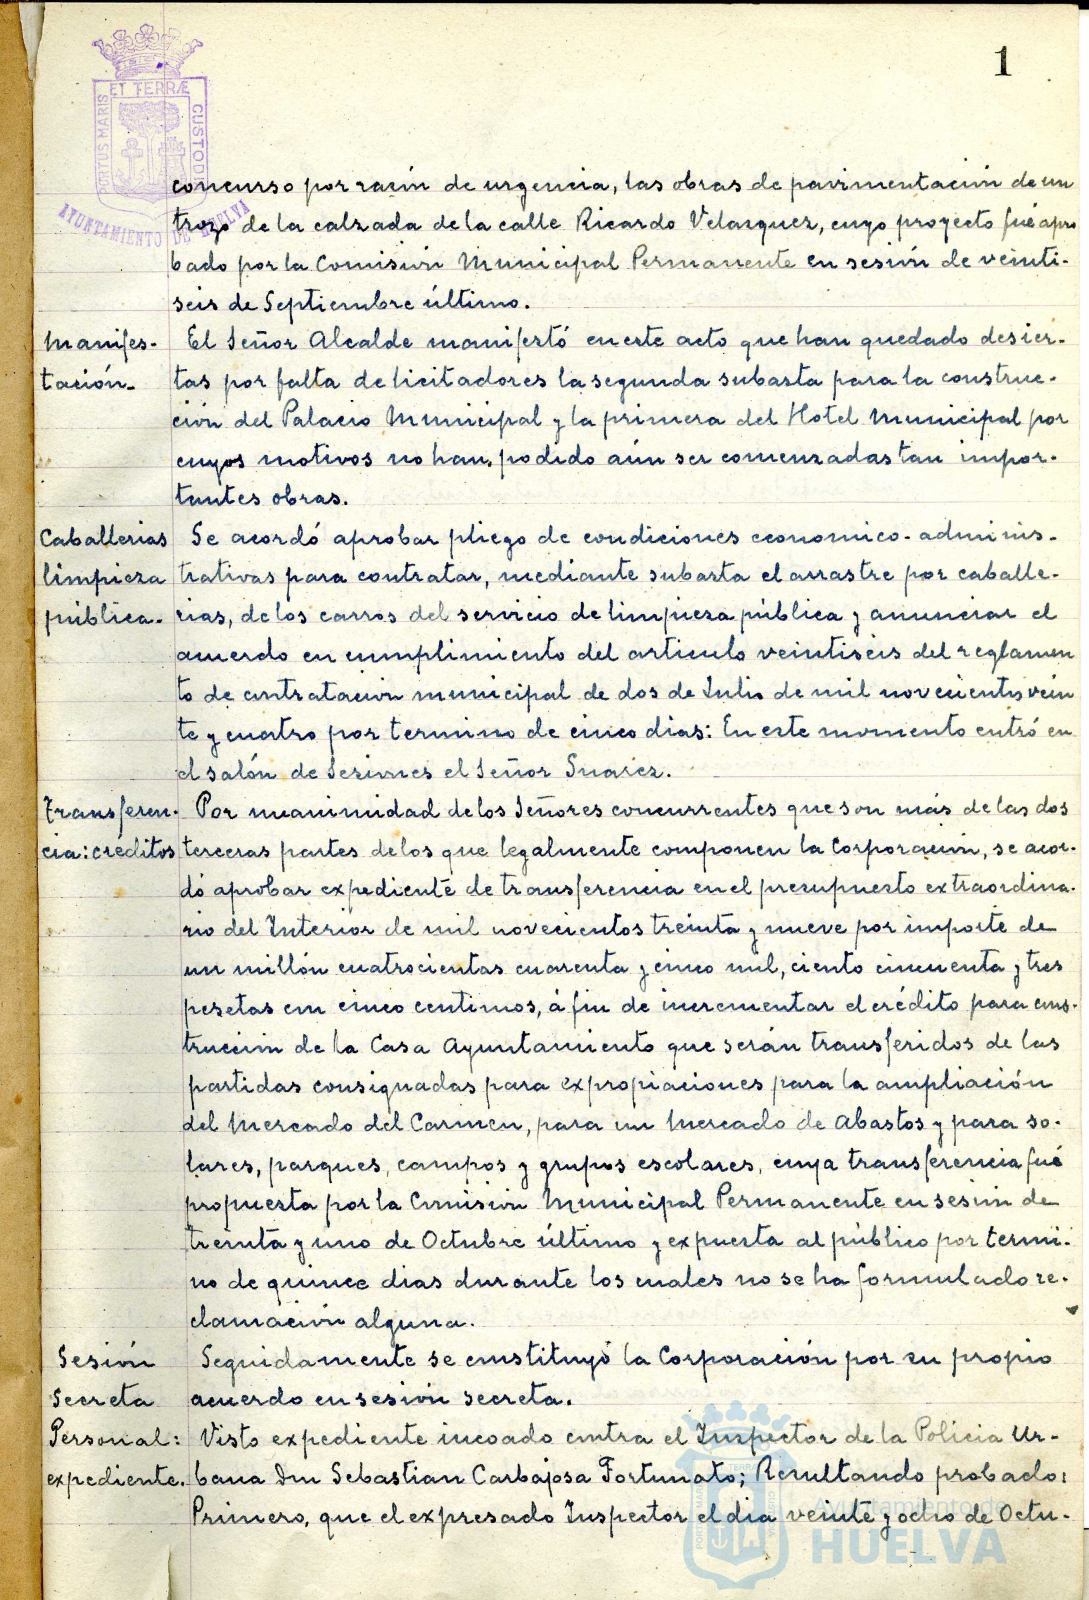 1
PORTUS MARIS ET TERRÆ CUSTODIA
AYUNTAMIENTO DE HUELVA
concurso por razón de urgencia, las obras de pavimentación de un
trozo de la calzada de la calle Ricardo Velazquez, cuyo proyecto fué apro
bado por la Comisión Municipal Permanente en sesión de veinti-
seis de Septiembre último.
Manifes- El Señor Alcalde manifestó en este acto que han quedado desier-
tación- tas por falta de licitadores la segunda subasta para la construc-
ción del Palacio Municipal y la primera del Hotel Municipal por
cuyos motivos no han podido aún ser comenzadas tan impor-
tantes obras.
Caballerias Se acordó aprobar pliego de condiciones economico-adminis-
limpieza trativas para contratar, mediante subasta el arrastre por caballe-
pública.- rias, de los carros del servicio de limpieza pública y anunciar el
acuerdo en cumplimiento del articulo veintiseis del reglamen
to de contratación municipal de dos de Julio de mil novecientos vein
te y cuatro por termino de cinco dias: En este momento entró en
el salón de Sesiones el Señor Suarez.
Transferen- Por unanimidad de los Señores concurrentes que son más de las dos
cia: créditos terceras partes de los que legalmente componen la Corporación, se acor-
dó aprobar expediente de transferencia en el presupuesto extraordina-
rio del Interior de mil novecientos treinta y nueve por importe de
un millón cuatrocientas cuarenta y cinco mil, ciento cincuenta y tres
pesetas con cinco centimos, á fin de incrementar el crédito para cons-
trucción de la Casa Ayuntamiento que serán transferidos de las
partidas consignadas para expropiaciones para la ampliación
del Mercado del Carmen, para un Mercado de Abastos y para so-
lares, parques, campos y grupos escolares, cuya transferencia fué
propuesta por la Comisión Municipal Permanente en sesión de
treinta y uno de Octubre último y expuesta al público por termi-
no de quince dias durante los cuales no se ha formulado re-
clamación alguna.
Sesión Seguidamente se constituyó la Corporación por su propio
Secreta acuerdo en sesión secreta.
Personal: Visto expediente incoado contra el Inspector de la Policia Ur-
expediente. bana Don Sebastian Carbajosa Fortunato; Resultando probado:
Primero, que el expresado Inspector el dia veinte y ocho de Octu-
Ayuntamiento de
HUELVA